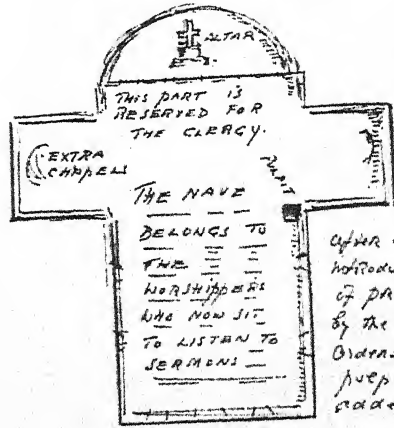 ALTAR
THIS PART IS
RESERVED FOR
THE CLERGY.
EXTRA
CHAPPELS
PULPIT
THE NAVE
BELONGS TO
THE
WORSHIPPERS
WHO NOW SIT
TO LISTEN TO
SERMONS
after
introdu
of pr
by the
Orders
pulp
adde